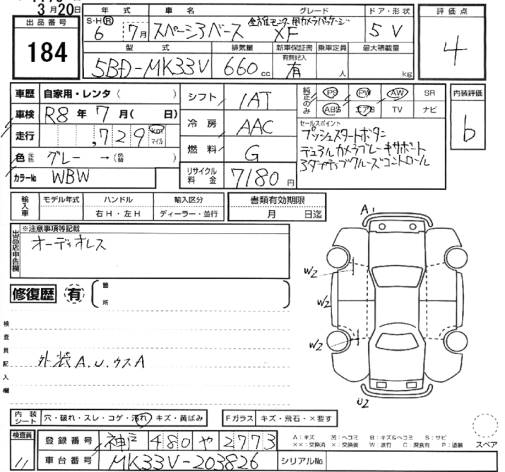 3月20日
出品番号 184
年式 車名 グレード ドア・形状 評価点
S・H・R 6年 7月 スペーシアベース XF 5V 4
型式 排気量 新車保証書 乗車定員 最大積載量
5BD-MK33V 660cc 有 人 kg
車歴 自家用・レンタ
車検 R8年 7月( 日)
走行 ,729 km マイル
色 グレー →
カラーNo WBW
シフト 1AT
冷房 AAC
燃料 G
リサイクル料金 7180円
純正のみ PS PW AW SR
ABS エアB TV ナビ
セールスポイント
プッシュスタートボタン
デュアルカメラブレーキサポート
内装評価 b
輸入車 モデル年式 ハンドル 輸入区分
右H・左H ディーラー・並行
書類有効期限
月 日迄
※注意事項等記載
オーディオレス
修復歴 有 箇所
検査員記入欄
外装A.U.ウスA
A1
W2
W2
U2
内装シート 穴・破れ・スレ・コゲ・汚れ・キズ・黄ばみ
Fガラス キズ・飛石・×要す
検査員 11
登録番号 神戸 480 や 2773
車台番号 MK33V-203826
シリアルNo
A:キズ U:ヘコミ B:キズ&ヘコミ S:サビ
スペア